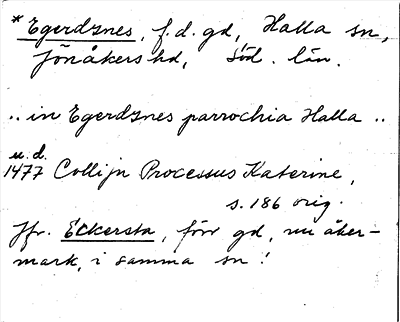 * Egerdznes, f.d. gd, Halla sn,
Jönåkers hd, Söd. län.
.. in Egerdznes parrochia Halla ..
u.d.
1477 Collijn Processus Katerine,
s. 186 orig.
Jfr. Eckersta, förr gd, nu åker-
mark, i samma sn!